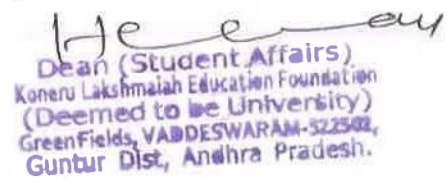 Dean (Student Affairs)
Koneru Lakshmaiah Education Foundation
(Deemed to be University)
GreenFields, VADDESWARAM-522502,
Guntur Dist, Andhra Pradesh.